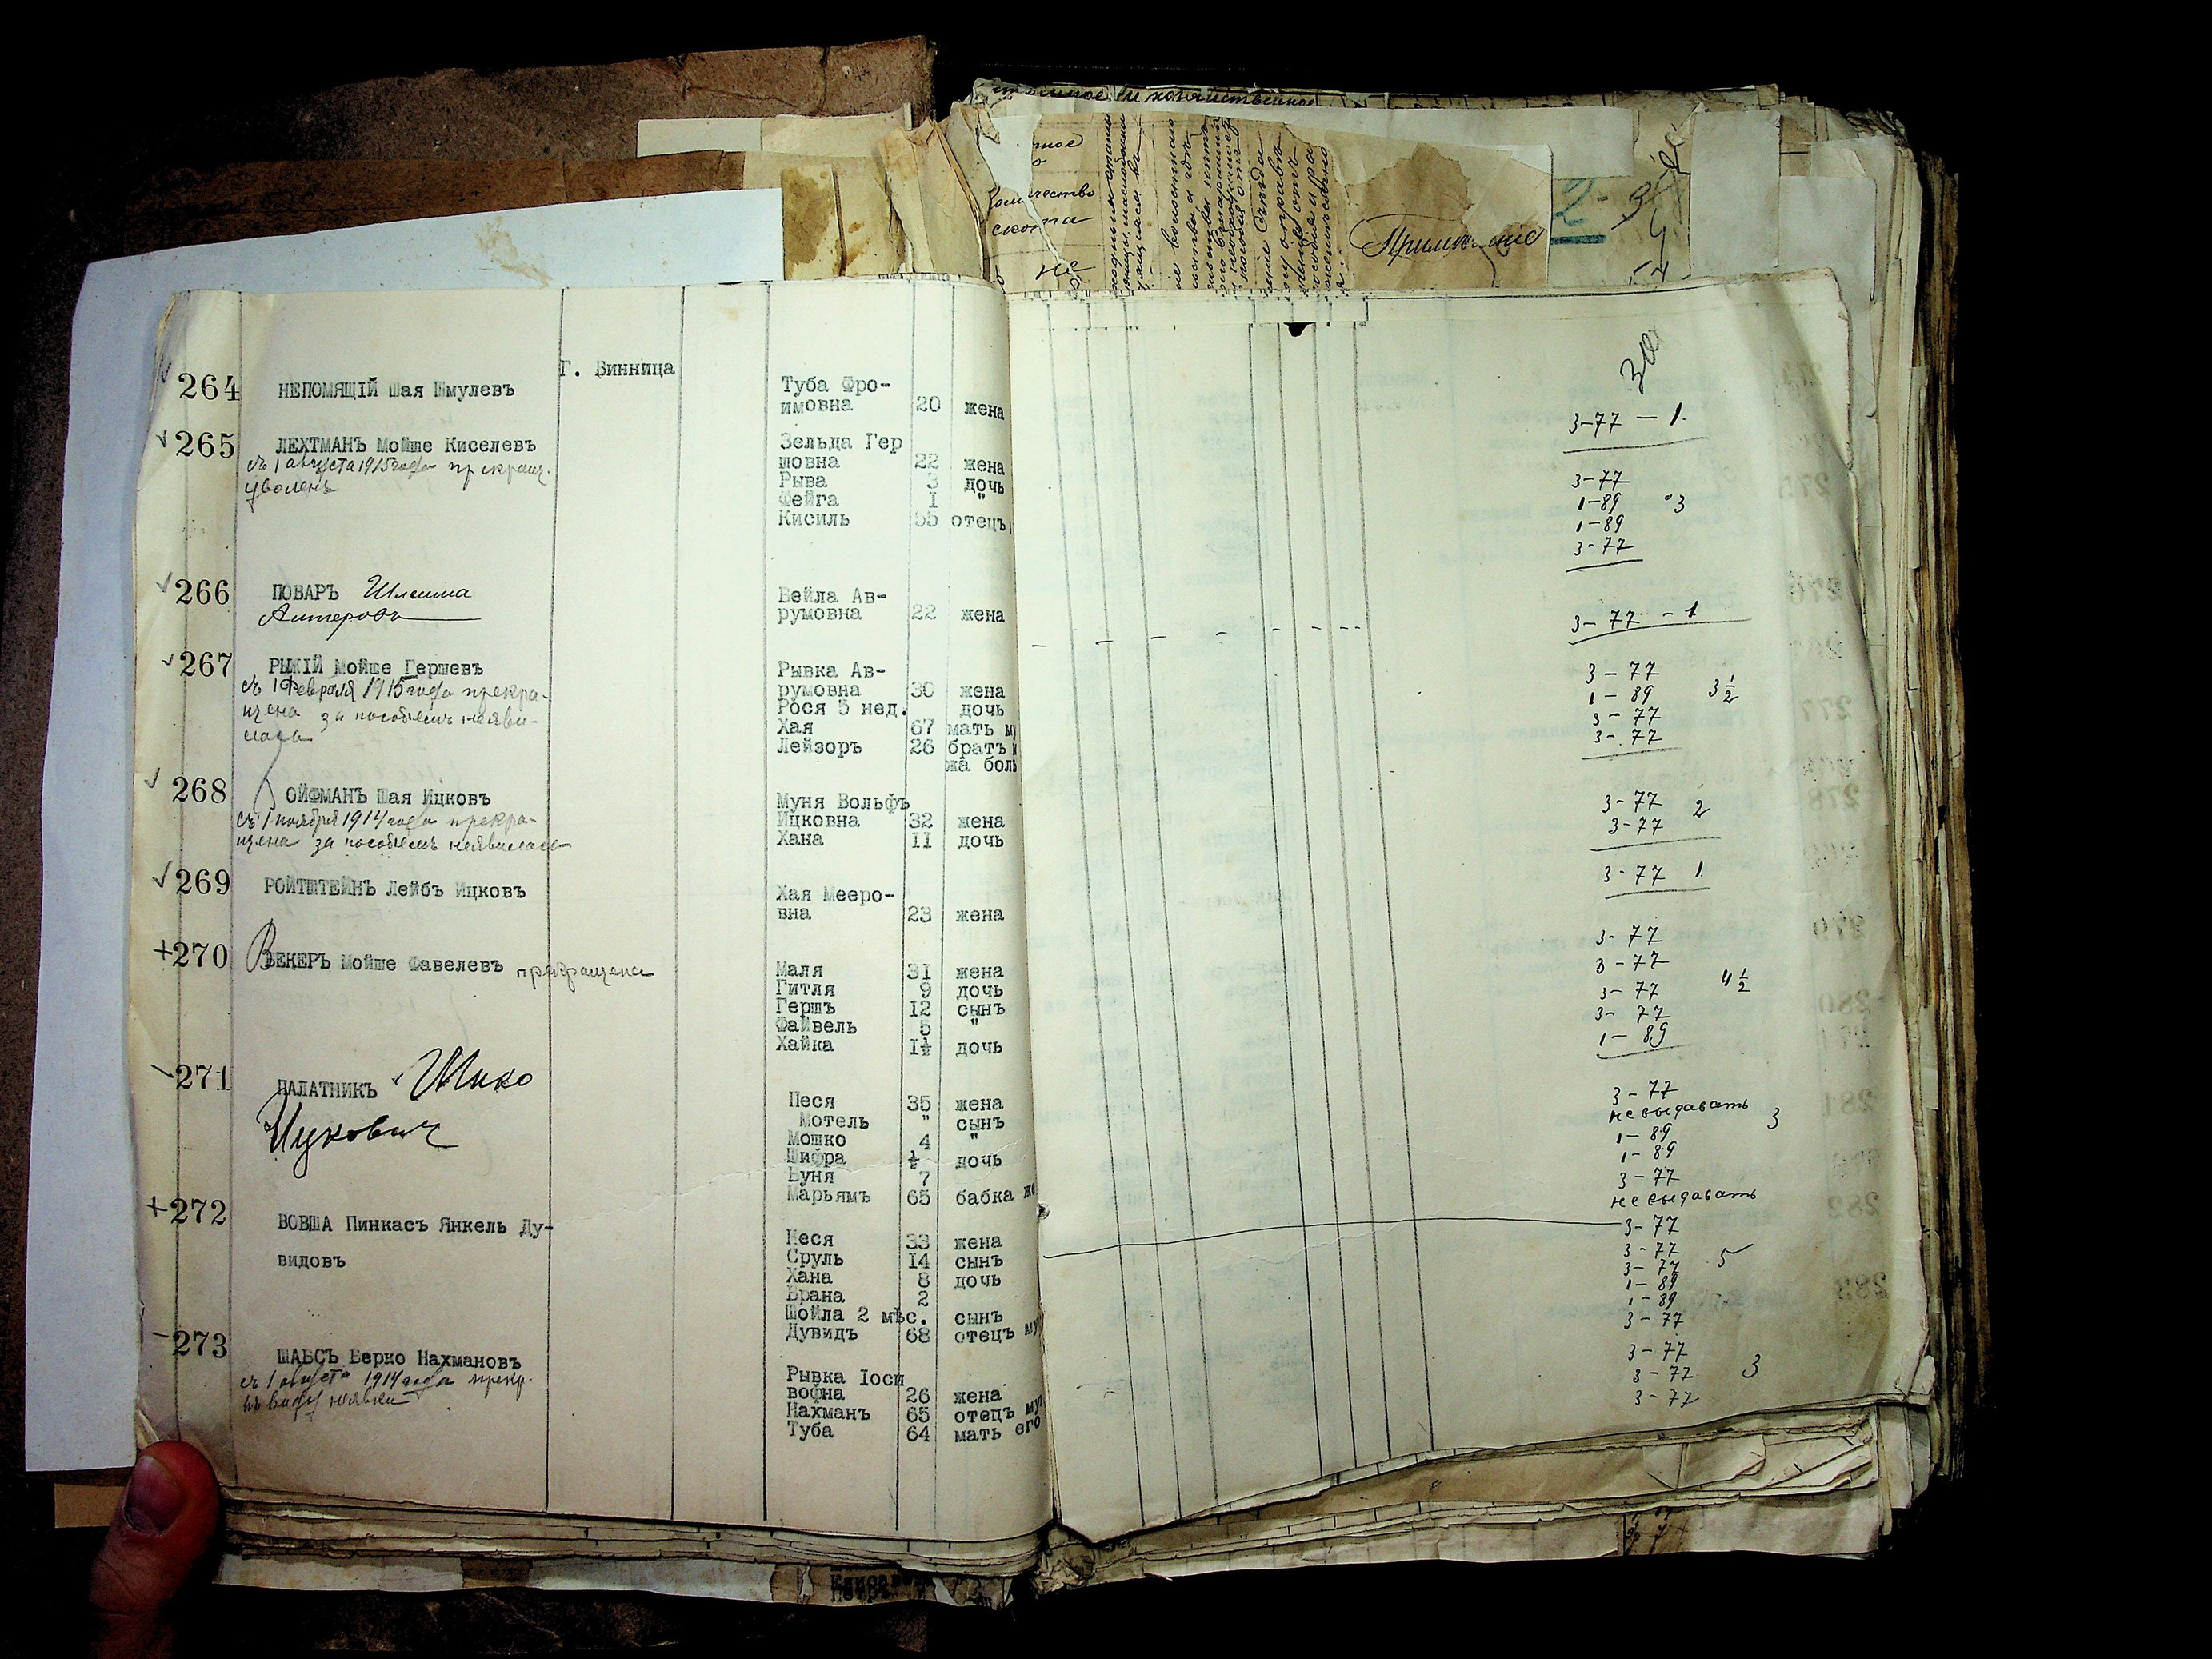 Примечание
г. Винница
264 НЕПОМЯЩІЙ Шая Шмулевъ Туба Фро-
имовна 20 жена
3-77 — 1.
265 ЛЕХТМАНЪ Мойше Киселевъ Зельда Гер
съ 1 августа 1915 года прекращ. шовна 22 жена 3-77
уволенъ Рыва 3 дочь 1-89 3
Фейга 1 " 1-89
Кисиль 55 отецъ 3-77
266 ПОВАРЪ Шлеима Бейла Ав-
Алтеровъ румовна 22 жена 3-77 - 1
267 РЫЖІЙ Мойше Гершевъ Рывка Ав-
съ 1 февраля 1915 года прекра- румовна 30 жена 3-77
щена за пособіемъ неяви- Рося 5 нед. дочь 1-89 3 1/2
лась Хая 67 мать 3-77
Лейзоръ 26 братъ 3-77
жа боль
268 ОЙФМАНЪ Шая Ицковъ Муня Вольф
съ 1 ноября 1914 года прекра- Ицковна 32 жена 3-77 2
щена за пособіемъ неявилась Хана 11 дочь 3-77
269 РОЙТШТЕЙНЪ Лейбъ Ицковъ Хая Мееро-
вна 23 жена 3-77 1.
270 ВЕКЕРЪ Мойше Фавелевъ прекращена Маля 31 жена 3-77
Гитля 9 дочь 3-77
Гершъ 12 сынъ 3-77 4 1/2
Файвель 5 " 3-77
Хайка 1½ дочь 1-89
271 ПАЛАТНИКЪ Шико Песя 35 жена 3-77
Ицкович Мотель " сынъ не выдавать 3
Мошко 4 " 1-89
Шифра ½ дочь 1-89
Буня 7 3-77
Марьямъ 65 бабка же не выдавать
272 ВОВША Пинкасъ Янкель Ду-
видовъ Песя 33 жена 3-77
Сруль 14 сынъ 3-77 5
Хана 8 дочь 3-77
Брана 2 1-89
Шойла 2 мѣс. сынъ 1-89
Дувидъ 68 отецъ му 3-77
273 ШАБСЪ Берко Нахмановъ Рывка Іоси
съ 1 августа 1914 года прекр. вофна 26 жена 3-77
въ виду неявки Нахманъ 65 отецъ му 3-77 3
Туба 64 мать его 3-77